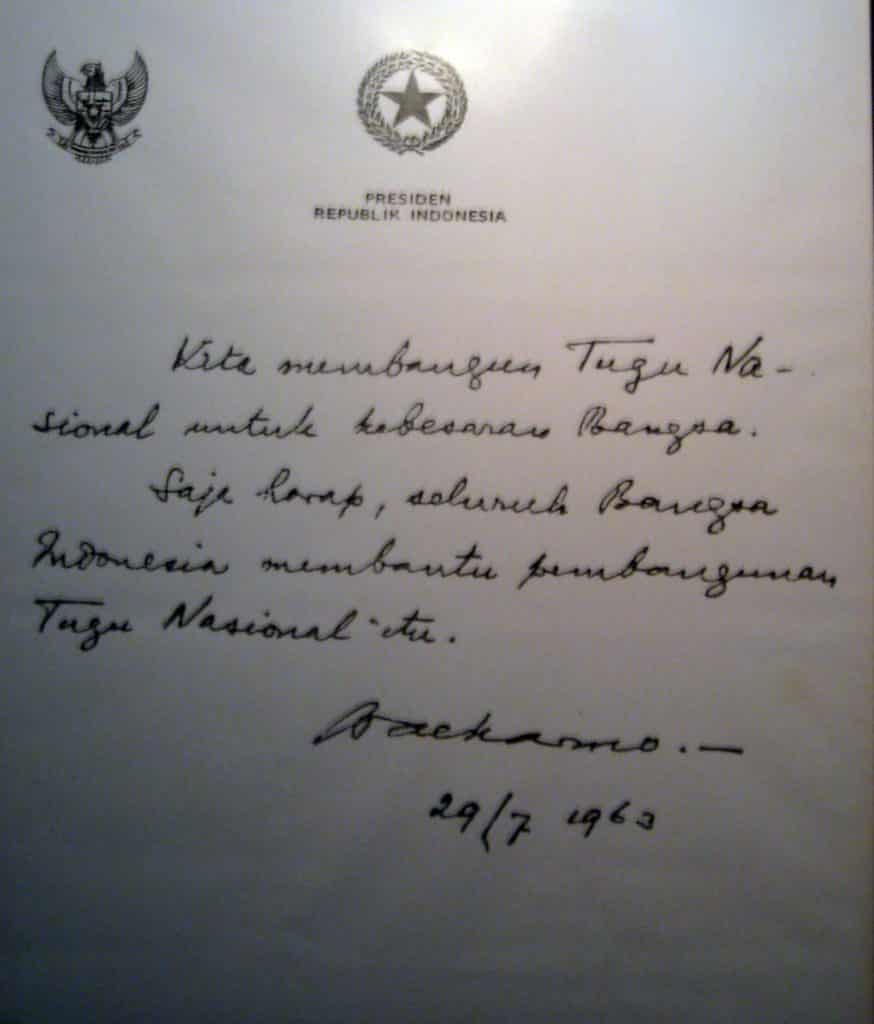 PRESIDEN
REPUBLIK INDONESIA
Kita membangun Tugu Na-
sional untuk kebesaran Bangsa.
Saja harap, seluruh Bangsa
Indonesia membantu pembangunan
Tugu Nasional itu.
Soekarno.—
29/7 1963